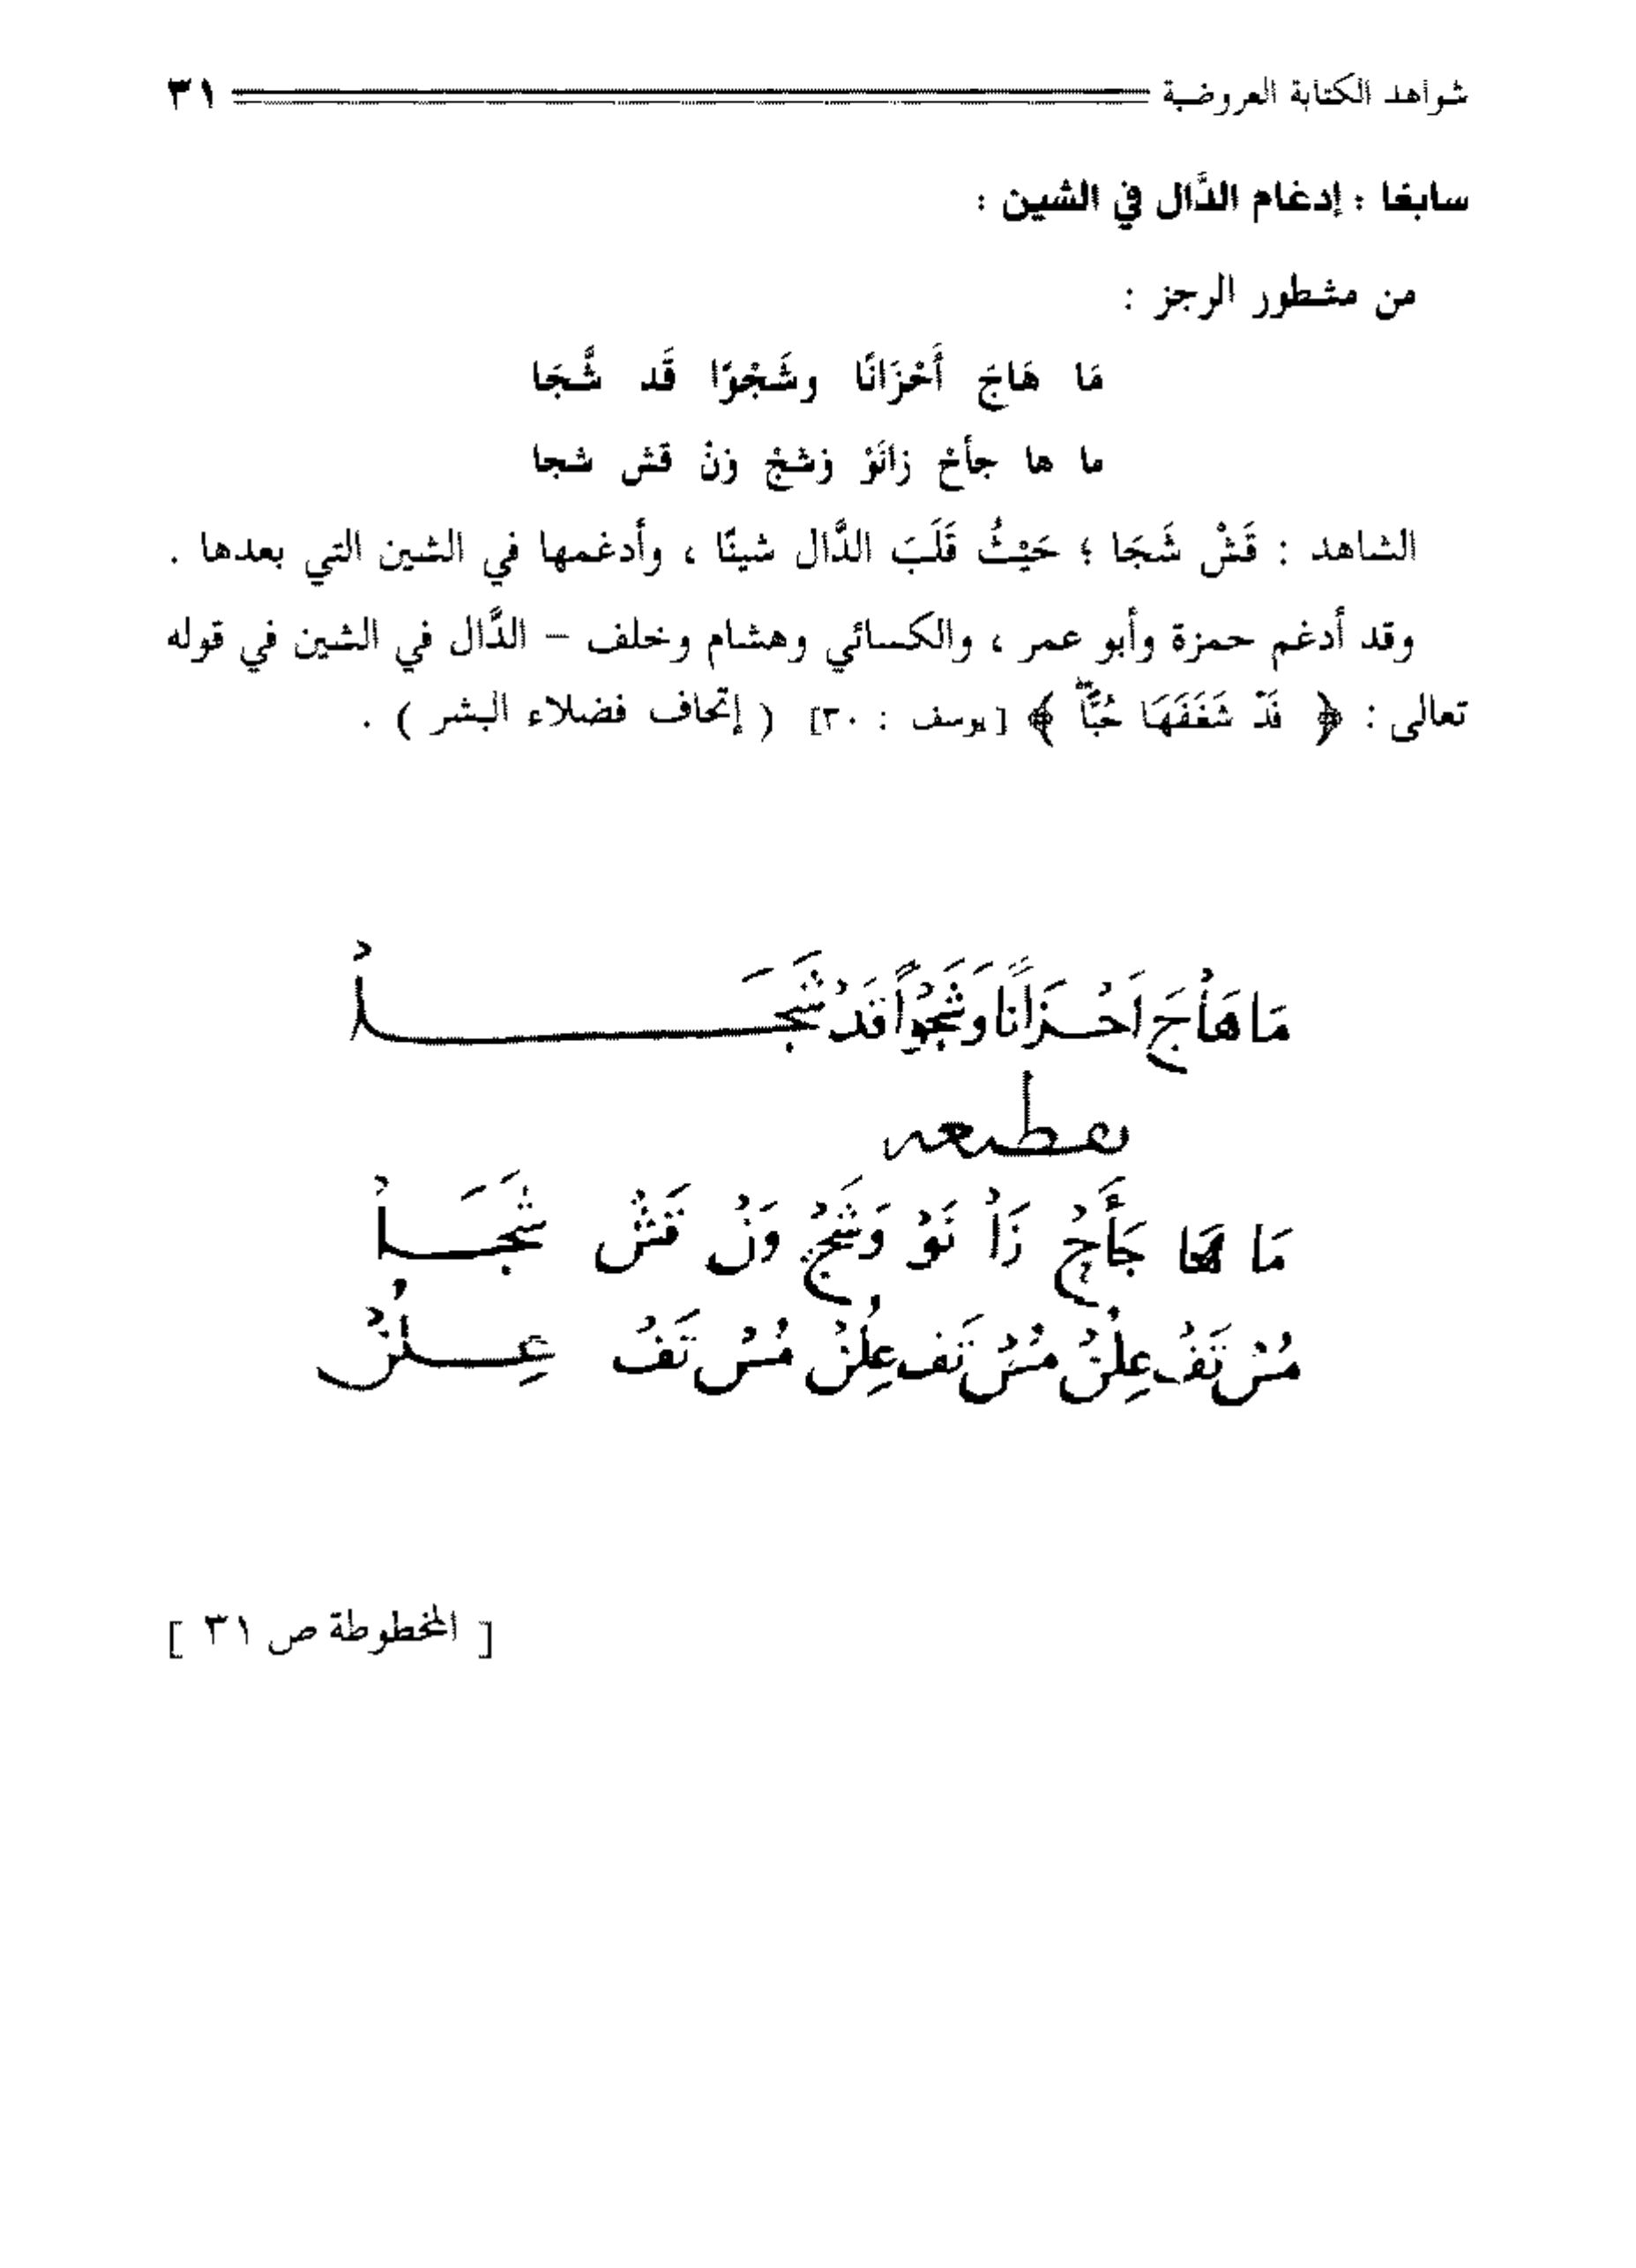 شواهد الكتابة العروضية ٣١
سابعًا : إدغام الدَّال في الشين :
من مشطور الرجز :
مَا هَاجَ أَحْزَانًا وشَجْوًا قَد شَّجَا
ما ها جأحْ زانَوْ وَشجْ وَنْ قش شجا
الشاهد : قَشْ شَجَا ؛ حَيْثُ قَلَبَ الدَّال شينًا ، وأدغمها في الشين التي بعدها .
وقد أدغم حمزة وأبو عمر ، والكسائي وهشام وخلف – الدَّال في الشين في قوله
تعالى : ﴿ قَدْ شَغَفَهَا حُبًّا ﴾ [يوسف : ٣٠] ( إتحاف فضلاء البشر ) .
مَا هَاْجَ اَحْزَانًا وَشَجْوًا قَدْ شَجَـــاْ
تقطيعه
مَا هَا جَأَحْ زَاْ نَوْ وَشَجْ وَنْ قَشْ شَجَـاْ
مُسْ تَفْ عِلُنْ مُسْ تَفْ عِلُنْ مُسْ تَفْ عِـلُنْ
[ المخطوطة ص ٣١ ]